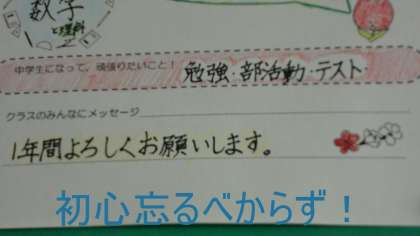 数学
と理科
中学生になって、頑張りたいこと！
勉強・部活動・テスト
クラスのみんなにメッセージ
1年間よろしくお願いします。
初心忘るべからず！